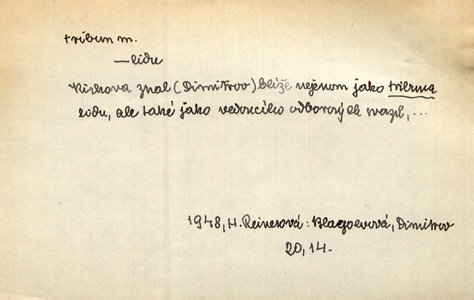 tribun m.
— lidu
Kirkova znal (Dimitrov) blíže nejenom jako tribuna
lidu, ale také jako vedoucího odborových svazů, ...
1948, H. Reinerová: Blagoevová, Dimitrov
20, 14.